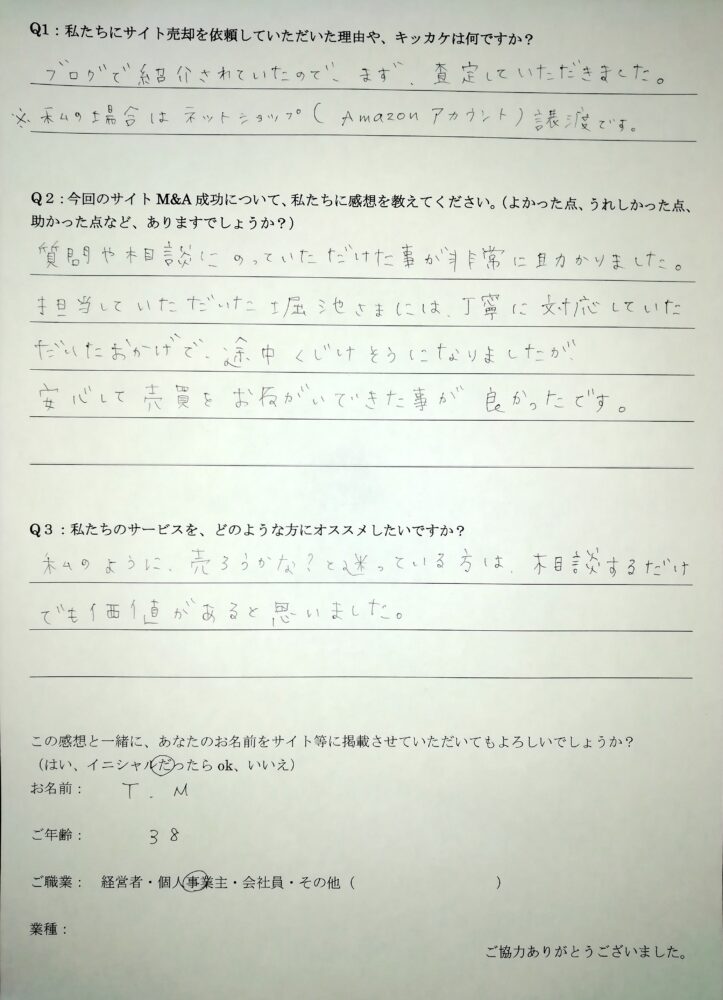 Q1：私たちにサイト売却を依頼していただいた理由や、キッカケは何ですか？
ブログで紹介されていたので、まず、査定していただきました。
※私の場合はネットショップ(Amazonアカウント)譲渡です。
Q2：今回のサイトM&A成功について、私たちに感想を教えてください。（よかった点、うれしかった点、
助かった点など、ありますでしょうか？）
質問や相談にのっていただけた事が非常に助かりました。
担当していただいた堀池さまには、丁寧に対応していた
だいたおかげで、途中くじけそうになりましたが、
安心して売買をおねがいできた事が良かったです。
Q3：私たちのサービスを、どのような方にオススメしたいですか？
私のように、売ろうかな？と迷っている方は、相談するだけ
でも価値があると思いました。
この感想と一緒に、あなたのお名前をサイト等に掲載させていただいてもよろしいでしょうか？
（はい、イニシャルだったらok、いいえ）
お名前： T．M
ご年齢： 38
ご職業： 経営者・個人事業主・会社員・その他（ ）
業種：
ご協力ありがとうございました。